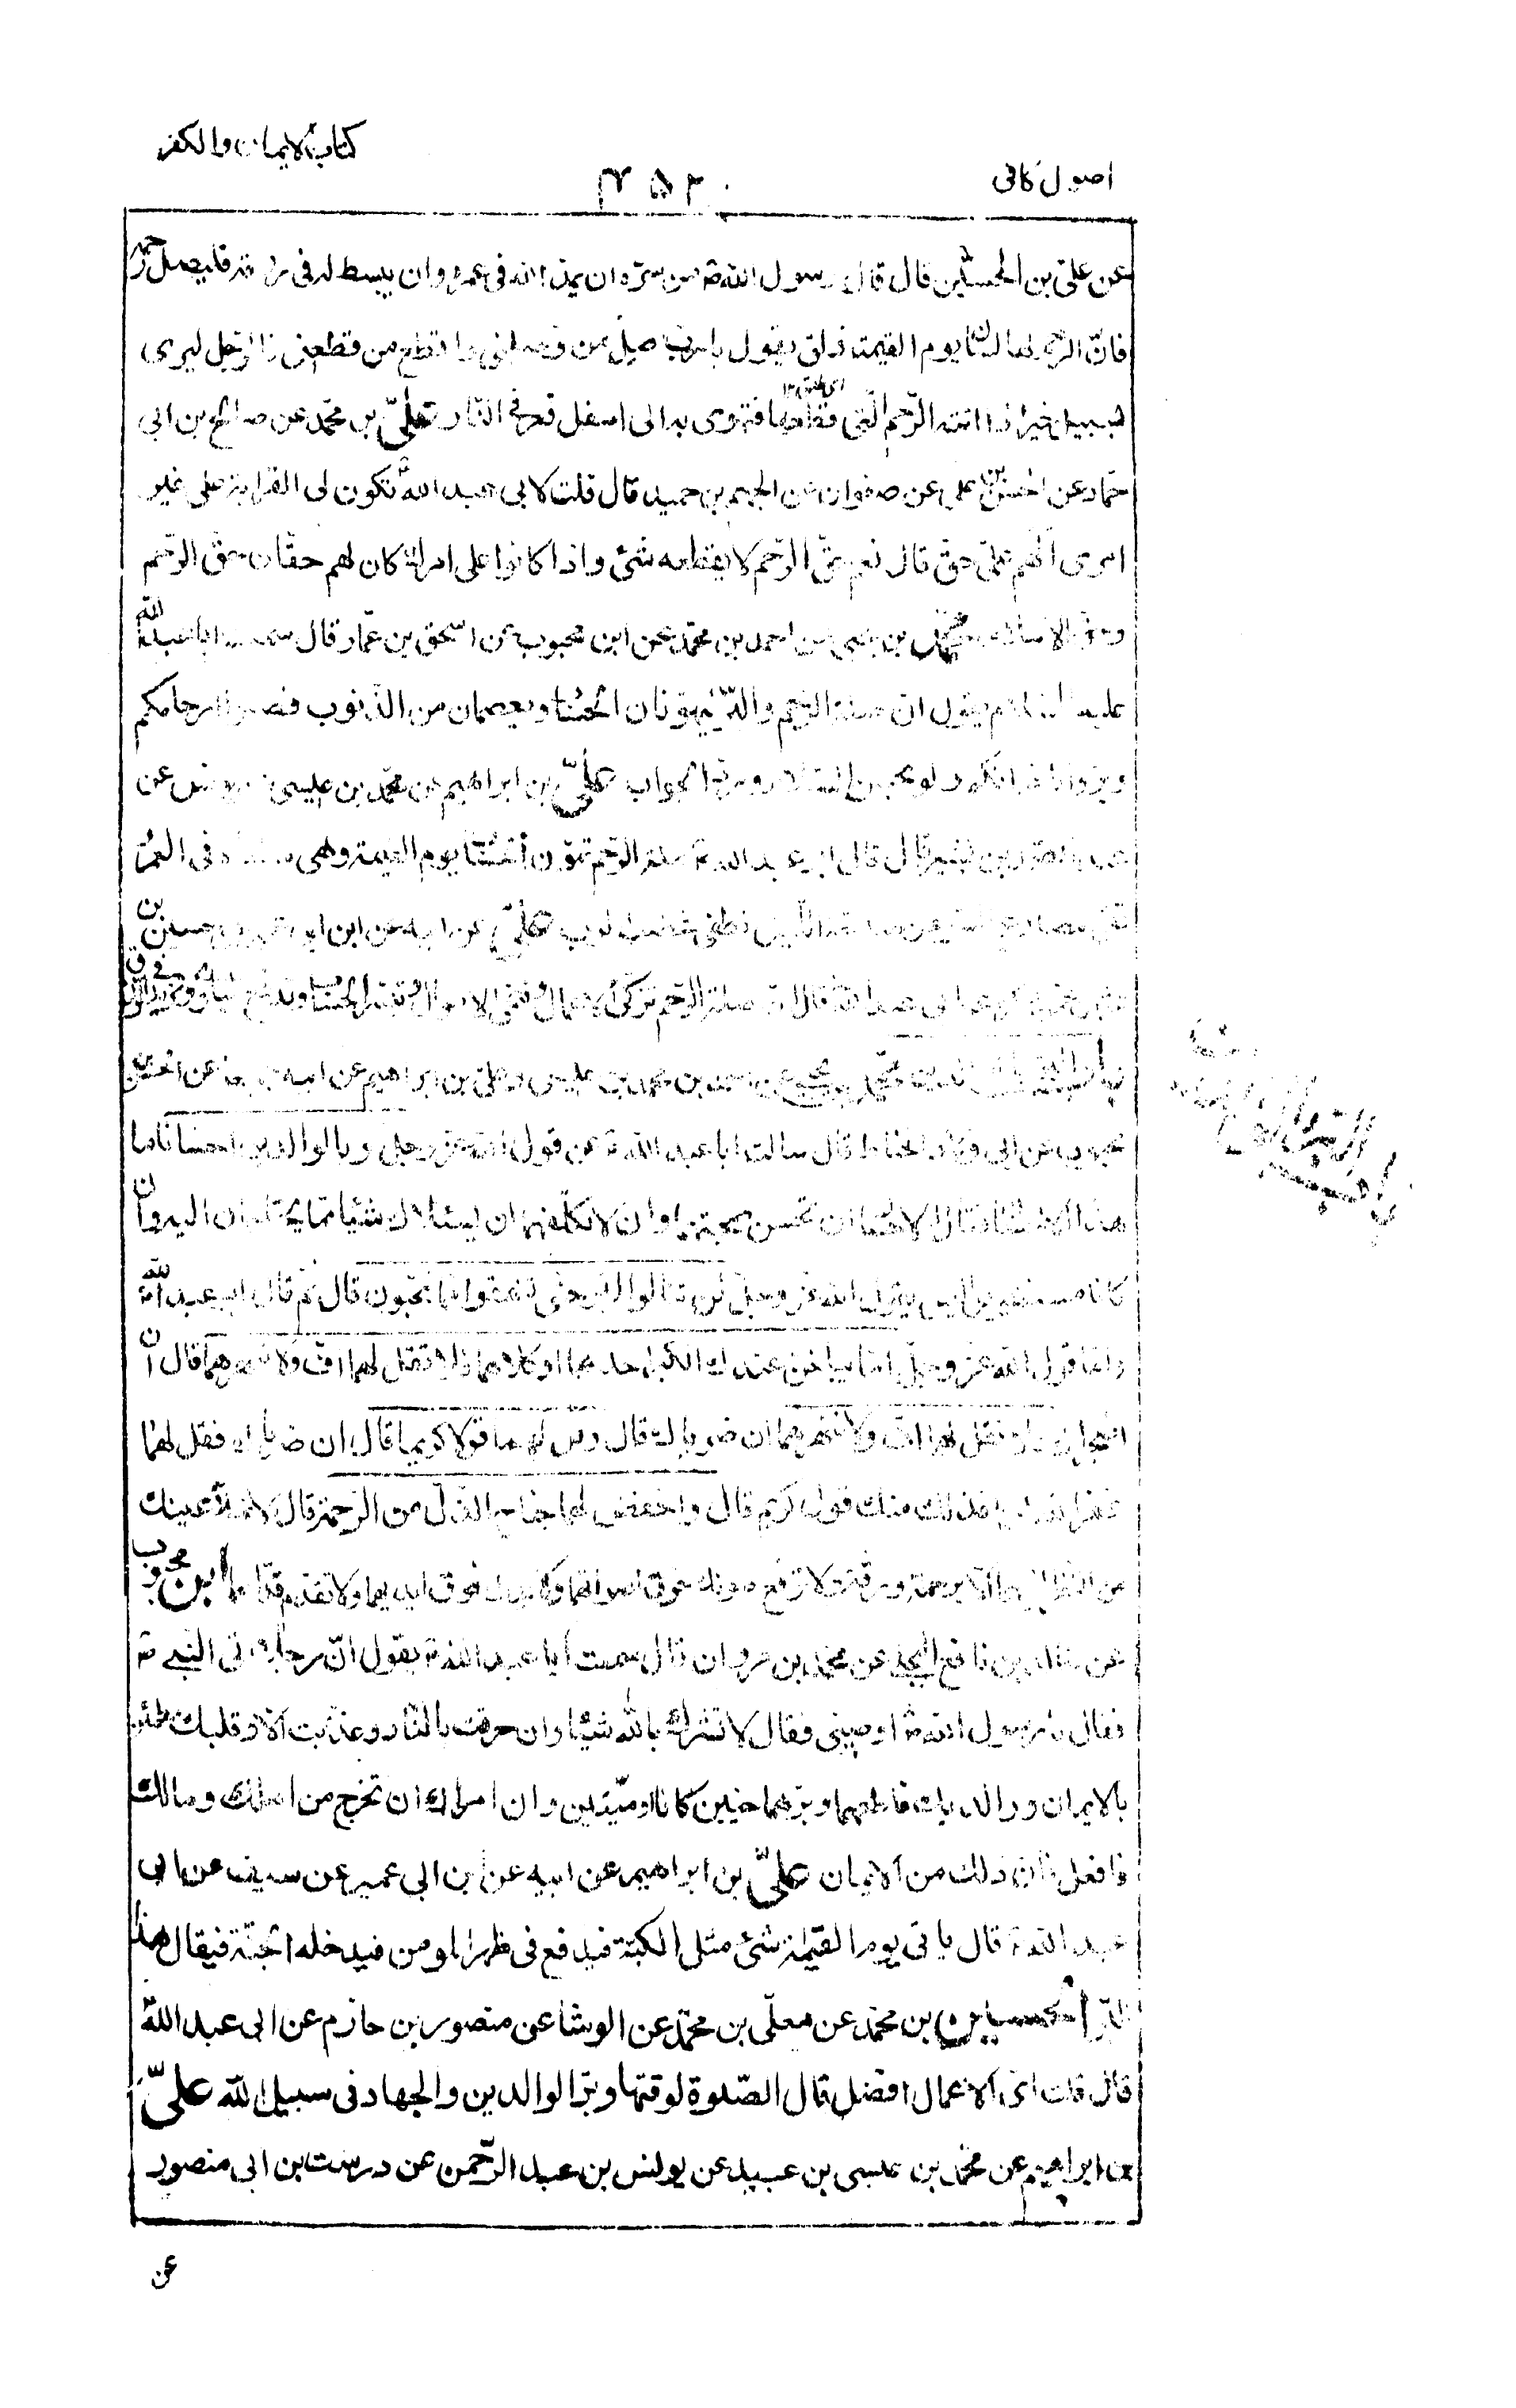 كتاب الايمان والكفر
اصول كافى
۳۵۲
عن على بن الحسين قال قال رسول الله ص من سره ان يمد الله فى عمره وان يبسط له فى رزقه فليصل رحمه
فان الرحم لها لسان يوم القيمة ذلق يقول يا رب صل من وصلنى واقطع من قطعنى فالرجل ليرى
بسبيل خير اذا اتته الرحم التى قطعها فتهوى به الى اسفل قعر فى النار على بن محمد عن صالح بن ابى
حماد عن الحسن بن على عن صفوان عن الجهم بن حميد قال قلت لابى عبد الله تكون لى القرابة على غير
امرى الهم على حق قال نعم حق الرحم لا يقطعه شئ واذا كانوا على امرك كان لهم حقان حق الرحم
وحق الاسلام محمد بن يحيى عن احمد بن محمد عن ابن محبوب عن اسحق بن عمار قال سمعت ابا عبد الله
عليه السلام يقول ان صلة الرحم والبر ليهونان الحساب ويعصمان من الذنوب فصلوا ارحامكم
وبروا باخوانكم ولو بحسن السلام ورد الجواب على بن ابراهيم عن محمد بن عيسى عن يونس عن
عبد الصمد بن بشير قال قال ابو عبد الله ع صلة الرحم تهون الحساب يوم القيمة وهى منساة فى العمر
وتقى مصارع السوء وصدقة الليل تطفئ غضب الرب على عن ابيه عن ابن ابى عمير عن حسين بن
عثمان عمن ذكره عن ابى عبد الله قال ان صلة الرحم تزكى الاعمال وتنمى الاموال وتيسر الحساب وتدفع البلوى وتزيد فى الرزق
باب البر بالوالدين محمد بن يحيى عن احمد بن محمد بن عيسى وعلى بن ابراهيم عن ابيه جميعا عن الحسن بن
محبوب عن ابى ولاد الحناط قال سالت ابا عبد الله ع عن قول الله عز وجل وبالوالدين احسانا ما
هذا الاحسان فقال الاحسان ان تحسن صحبتهما وان لا تكلفهما ان يسئلاك شيئا مما يحتاجان اليه وان
كانا مستغنيين اليس يقول الله عز وجل لن تنالوا البر حتى تنفقوا مما تحبون قال ثم قال ابو عبد الله
واما قول الله عز وجل اما يبلغن عندك الكبر احدهما او كلاهما فلا تقل لهما اف ولا تنهرهما قال ان
اضجراك فلا تقل لهما اف ولا تنهرهما ان ضرباك قال وقل لهما قولا كريما قال ان ضرباك فقل لهما
غفر الله لكما فذلك منك قول كريم قال واخفض لهما جناح الذل من الرحمة قال لا تملأ عينيك
من النظر اليهما الا برحمة ورقة ولا ترفع صوتك فوق اصواتهما ولا يدك فوق ايديهما ولا تقدم قدامهما ابن محبوب
عن خالد بن نافع البجلى عن محمد بن مروان قال سمعت ابا عبد الله ع يقول ان رجلا اتى النبى ص
فقال يا رسول الله ص اوصينى فقال لا تشرك بالله شيئا وان حرقت بالنار وعذبت الا وقلبك مطمئن
بالايمان ووالديك فاطعهما وبرهما حيين كانا او ميتين وان امراك ان تخرج من اهلك ومالك
فافعل فان ذلك من الايمان على بن ابراهيم عن ابيه عن ابن ابى عمير عن سيف عن ابى
عبد الله ع قال ياتى يوم القيمة شئ مثل الكبة فيدفع فى ظهر المومن فيدخله الجنة فيقال هذا
البر الحسين بن محمد عن معلى بن محمد عن الوشا عن منصور بن حازم عن ابى عبد الله
قال قلت اى الاعمال افضل قال الصلوة لوقتها وبر الوالدين والجهاد فى سبيل الله على
بن ابراهيم عن محمد بن عيسى بن عبيد عن يونس بن عبد الرحمن عن درست بن ابى منصور
عن